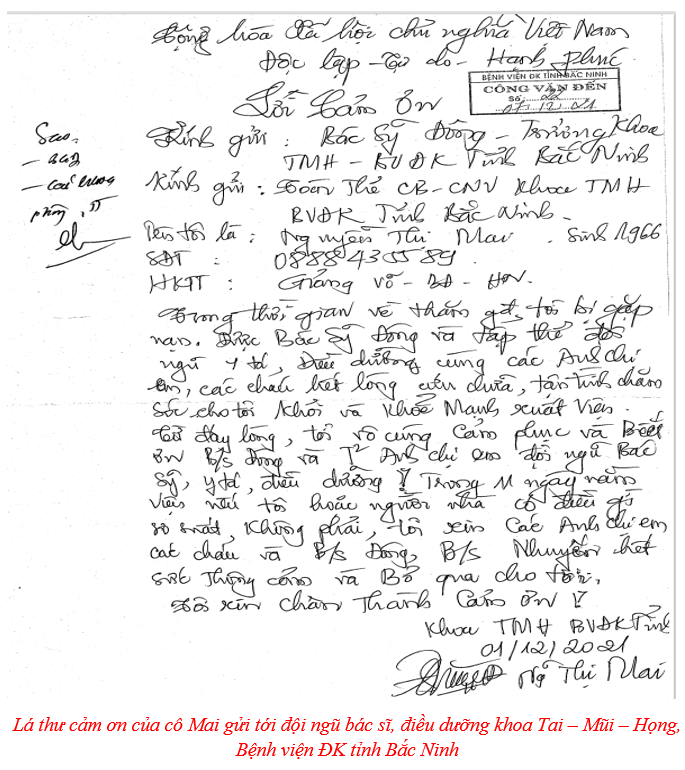 Cộng hòa xã hội chủ nghĩa Việt Nam
Độc lập - Tự do - Hạnh phúc
BỆNH VIỆN ĐK TỈNH BẮC NINH
CÔNG VĂN ĐẾN
Số:
07-12-21
Lời Cảm ơn
Sao:
Kính gửi : Bác Sỹ Đông - Trưởng Khoa
TMH - BVĐK Tỉnh Bắc Ninh
Kính gửi : Toàn Thể CB-CNV Khoa TMH
BVĐK Tỉnh Bắc Ninh.
Tên tôi là : Nguyễn Thị Mai . Sinh 1966
SĐT : 0888435589
HKTT : Giảng võ - BĐ - HN.
Trong thời gian về thăm gđ, tôi bị gặp
nạn. Được Bác Sỹ Đông và tập thể đội
ngũ y tá, Điều dưỡng cùng các Anh chị
em, các cháu hết lòng cứu chữa, tận tình chăm
sóc cho tôi Khỏi và Khỏe Mạnh xuất Viện.
Từ đáy lòng, tôi vô cùng Cảm phục và Biết
ơn B/s Đông và T² Anh chị em đội ngũ Bác
Sỹ, y tá, điều dưỡng ! Trong 11 ngày nằm
viện nếu tôi hoặc người nhà có điều gì
sơ suất, Không phải, tôi xin Các Anh chị em
các cháu và B/s Đông, B/s Nhuyến hết
sức Thông cảm và Bỏ qua cho tôi.
Tôi xin chân Thành Cảm ơn !
Khoa TMH BVĐK Tỉnh
01/12/2021
Ng Thị Mai
Lá thư cảm ơn của cô Mai gửi tới đội ngũ bác sĩ, điều dưỡng khoa Tai – Mũi – Họng,
Bệnh viện ĐK tỉnh Bắc Ninh